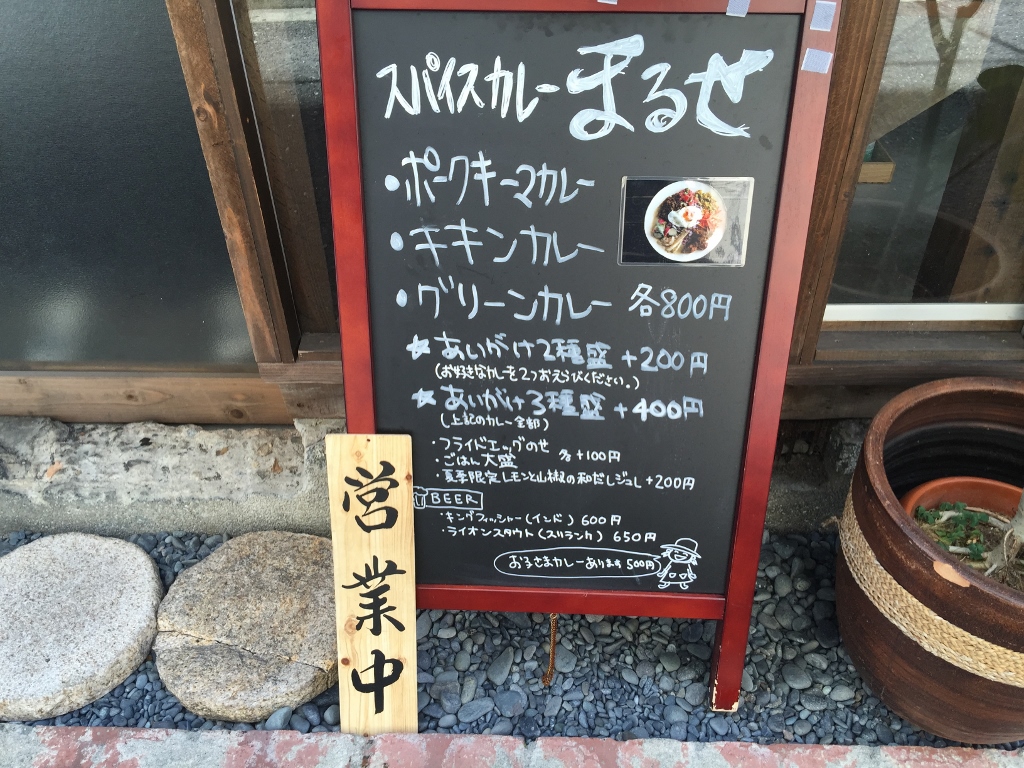 スパイスカレーまるせ
・ポークキーマカレー
・チキンカレー
・グリーンカレー 各800円
★あいがけ2種盛 +200円
(お好きなカレーを2つおえらびください。)
★あいがけ3種盛 +400円
(上記のカレー全部)
・フライドエッグのせ
・ごはん大盛 各+100円
・夏季限定レモンと山椒の和だしジュレ+200円
BEER
・キングフィッシャー(インド) 600円
・ライオンスタウト(スリランカ) 650円
お子さまカレーあります 500円
営業中